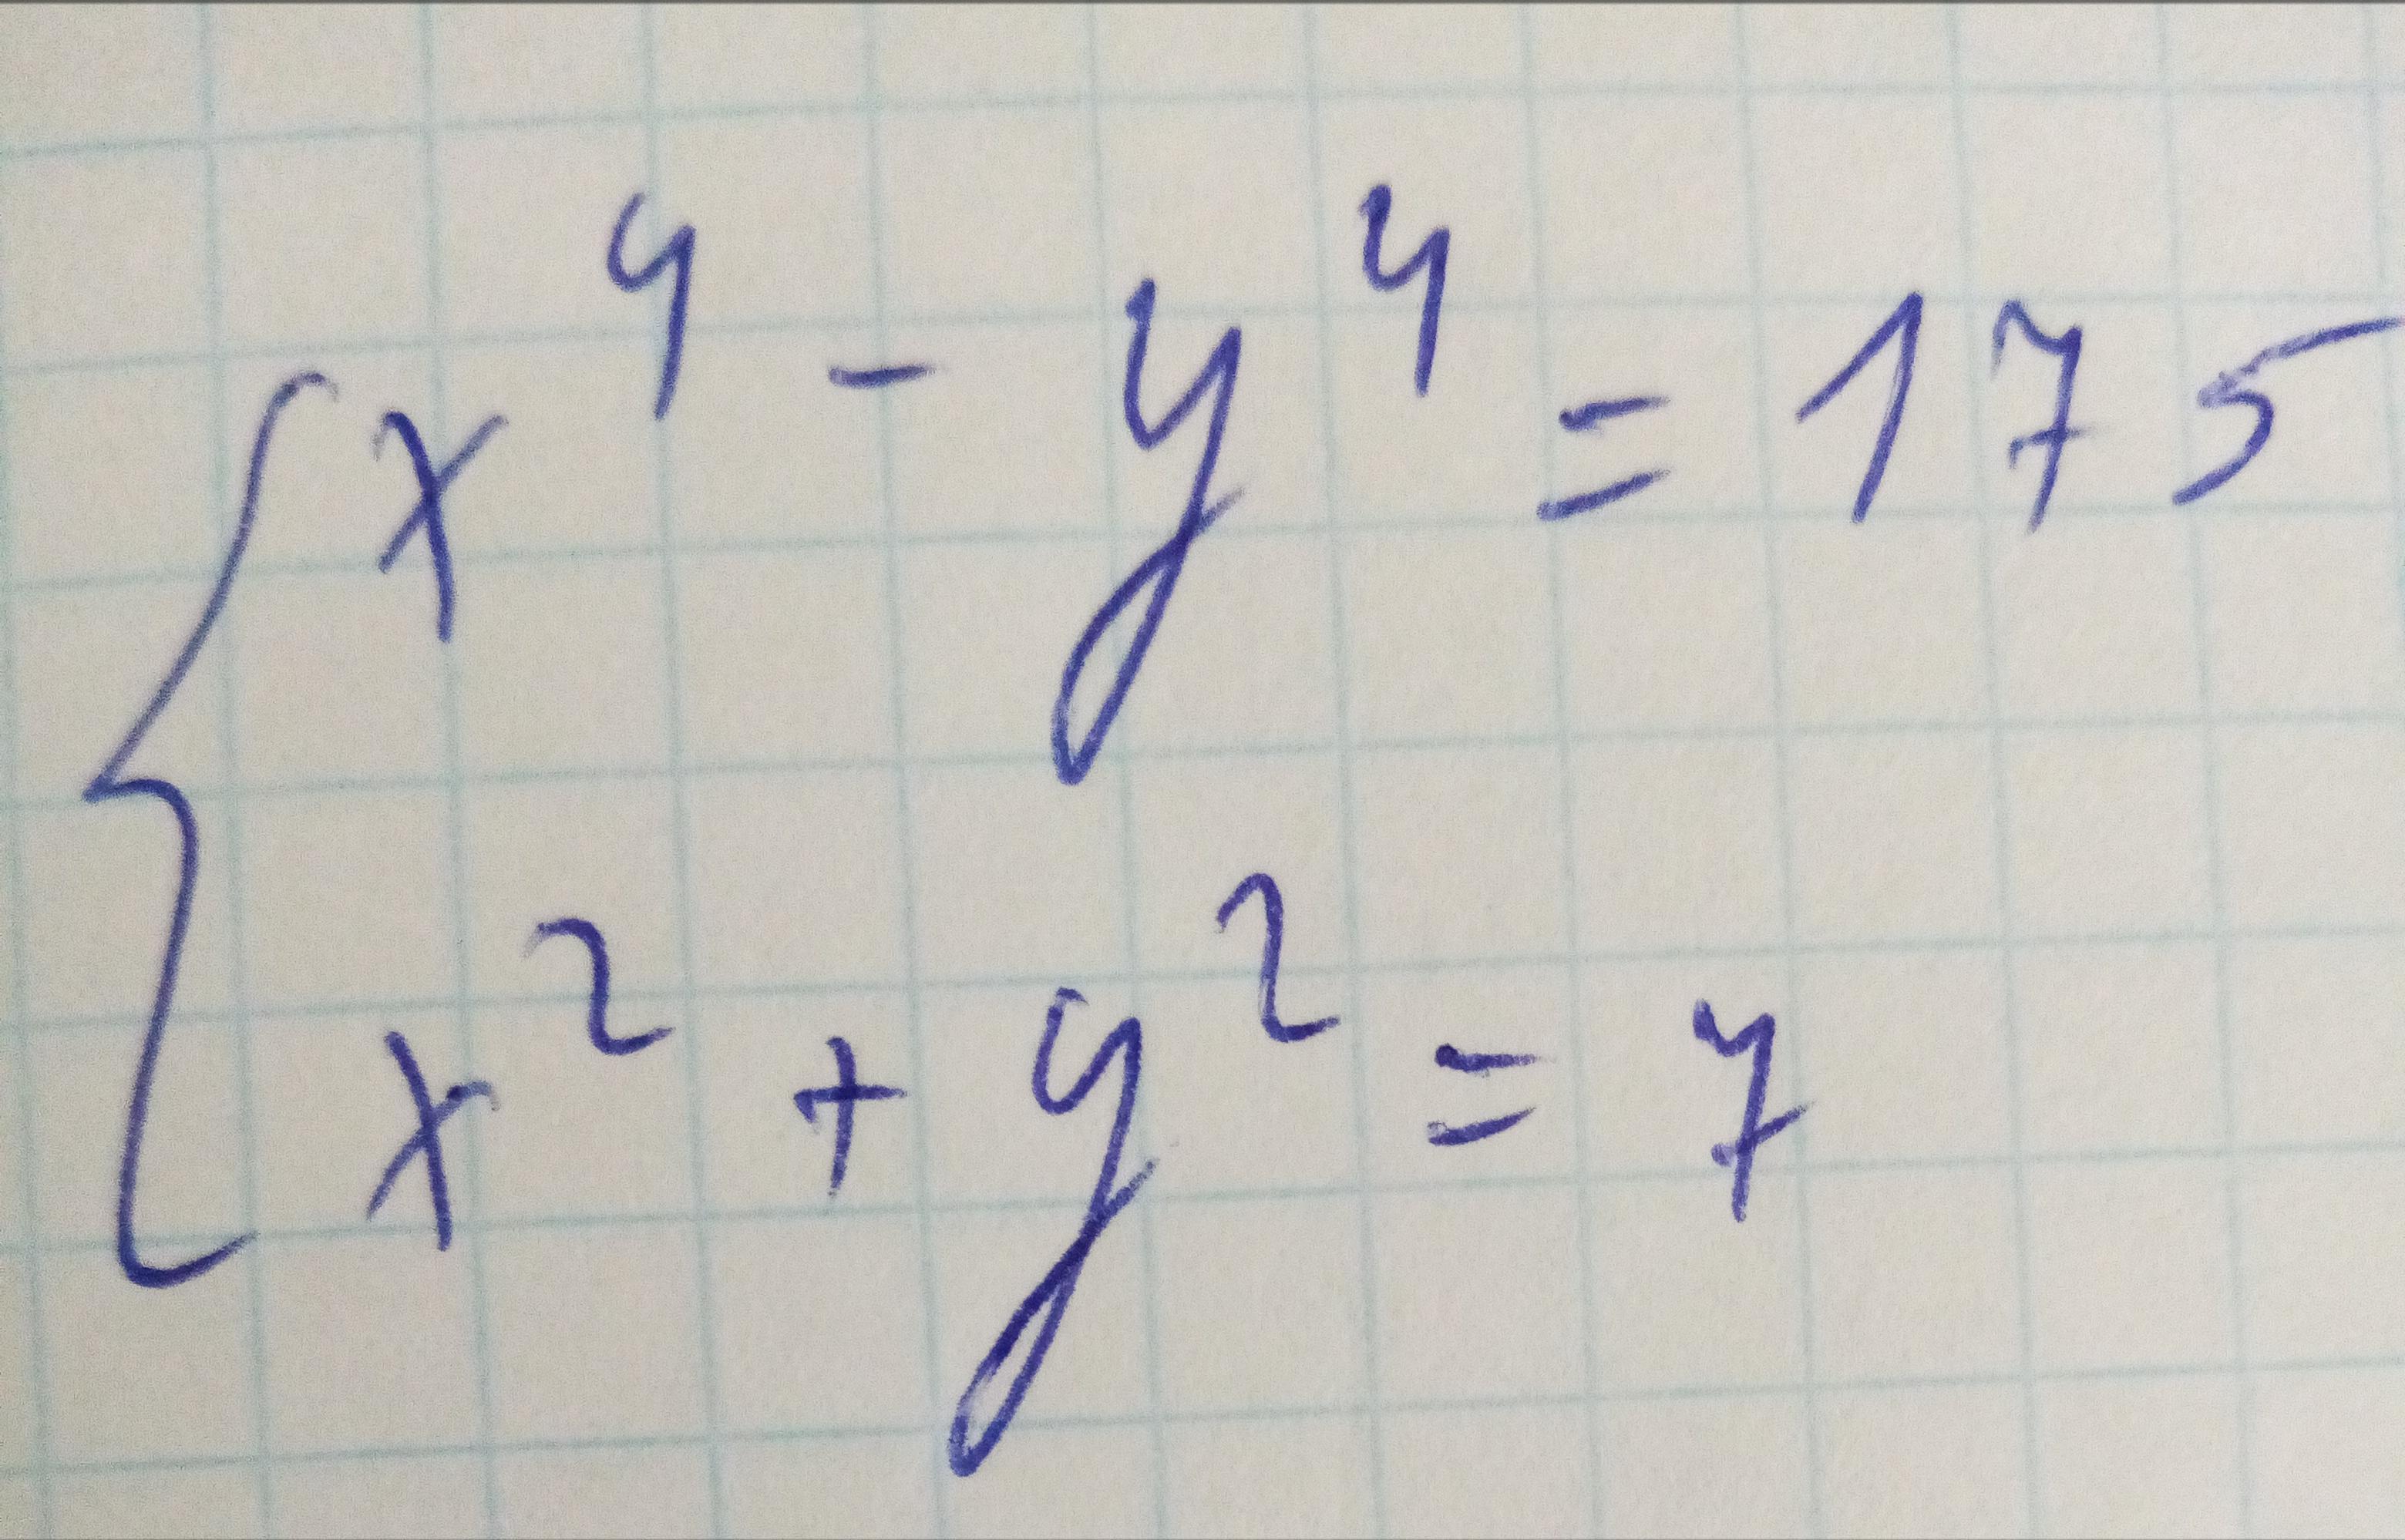 x⁴ - y⁴ = 175
x² + y² = 7